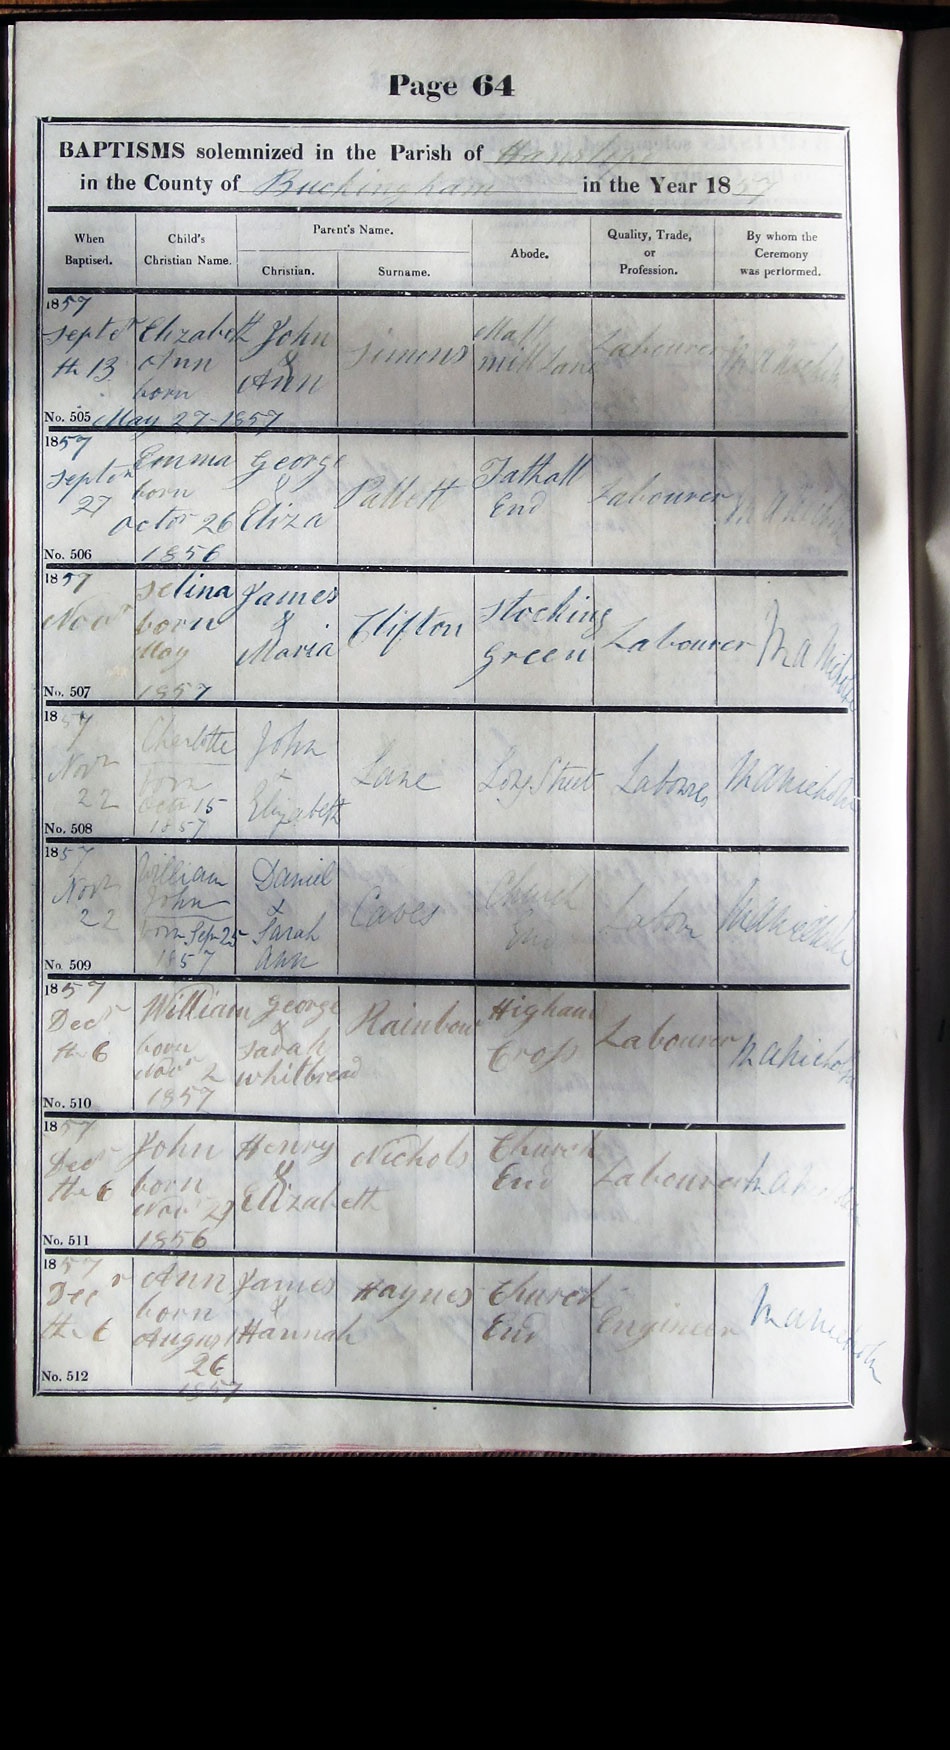 Page 64
BAPTISMS solemnized in the Parish of Hanslope
in the County of Buckingham in the Year 1857
When Baptised.
Child's Christian Name.
Parent's Name.
Christian.
Surname.
Abode.
Quality, Trade, or Profession.
By whom the Ceremony was performed.
1857
Septr Elizabeth John Simons Malt Labourer
th 13 Ann & mill Lane
born Ann
No. 505 May 27-1857
1857
Septr Emma George Pallett Tathall Labourer
27 born & End
Octor 26 Eliza
No. 506 1856
1857
Novr Selina James Clifton Stocking Labourer
born & Green
May Maria
No. 507 1857
1857
Novr Charlotte John Lane Long Street Labourer
22 born &
Octr 15 Elizabeth
No. 508 1857
1857
Novr William Daniel Caves Church Labour
22 John & End
born Sepr 25 Sarah
No. 509 1857 Ann
1857
Decr William George Rainbow Higham Labourer
th 6 born & Cross
Novr 2 Sarah
1857 Whitbread
No. 510
1857
Decr John Henry Nichols Church Labourer
th 6 born & End
Novr 29 Elizabeth
No. 511 1856
1857
Decr Ann James Haynes Church Engineer
th 6 born & End
August Hannah
26
No. 512 1857